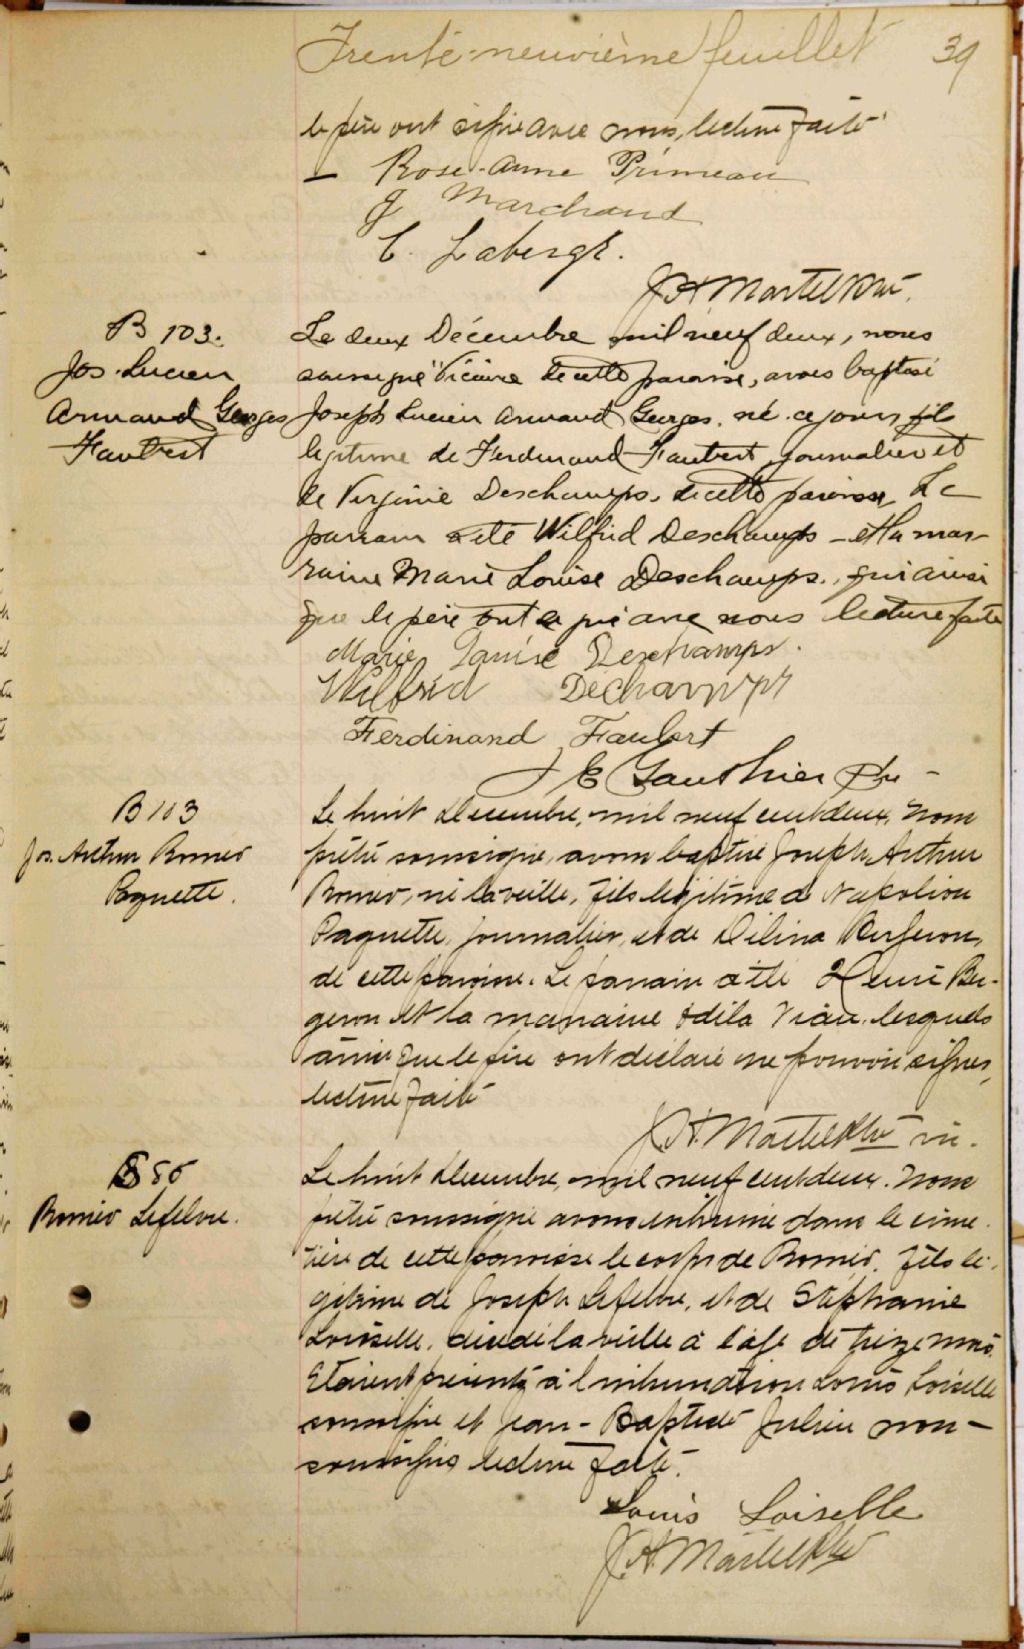 Trente-neuvième feuillet 39
le père ont signé avec nous, lecture faite
Rose-Anne Primeau
J Marchand
C. Laberge.
J A Martel Ptre.
B 103.
Jos. Lucien
Armand Georges
Faubert
Le deux Décembre mil neuf deux, nous
soussigné Vicaire de cette paroisse, avons baptisé
Joseph Lucien Armand Georges, né ce jour, fils
légitime de Ferdinand Faubert, journalier et
de Virginie Deschamps, de cette paroisse Le
parrain a été Wilfrid Deschamps - et la mar-
raine Marie Louise Deschamps., qui ainsi
que le père ont signé avec nous lecture faite
Marie Louise Deschamps.
Wilfrid Dechamps
Ferdinand Faubert
J E Gauthier Ptre -
B 103
Jos. Arthur Romeo
Paquette.
Le huit Decembre, mil neuf cent deux, nous
prêtre soussigné, avons baptisé Joseph Arthur
Roméo, né la veille, fils légitime de Napoléon
Paquette, journalier, et de Délina Bergeron,
de cette paroisse. Le parrain a été Henri Ber-
geron et la marraine Odila Viau, lesquels
ainsi que le père ont déclaré ne pouvoir signer,
lecture faite
J. A. Martel Ptre vic.
S 56
Roméo Lefebvre.
Le huit Decembre, mil neuf cent deux. nous
prêtre soussigné avons inhumé dans le cime-
tière de cette paroisse le corps de Roméo, fils lé-
gitime de Joseph Lefebvre, et de Stéphanie
Loiselle, décédé la veille à l'âge de treize mois.
Etaient présents à l'inhumation Louis Loiselle
soussigné et Jean-Baptiste Julien non-
soussigné lecture faite.
Louis Loiselle
J. A. Martel Ptre